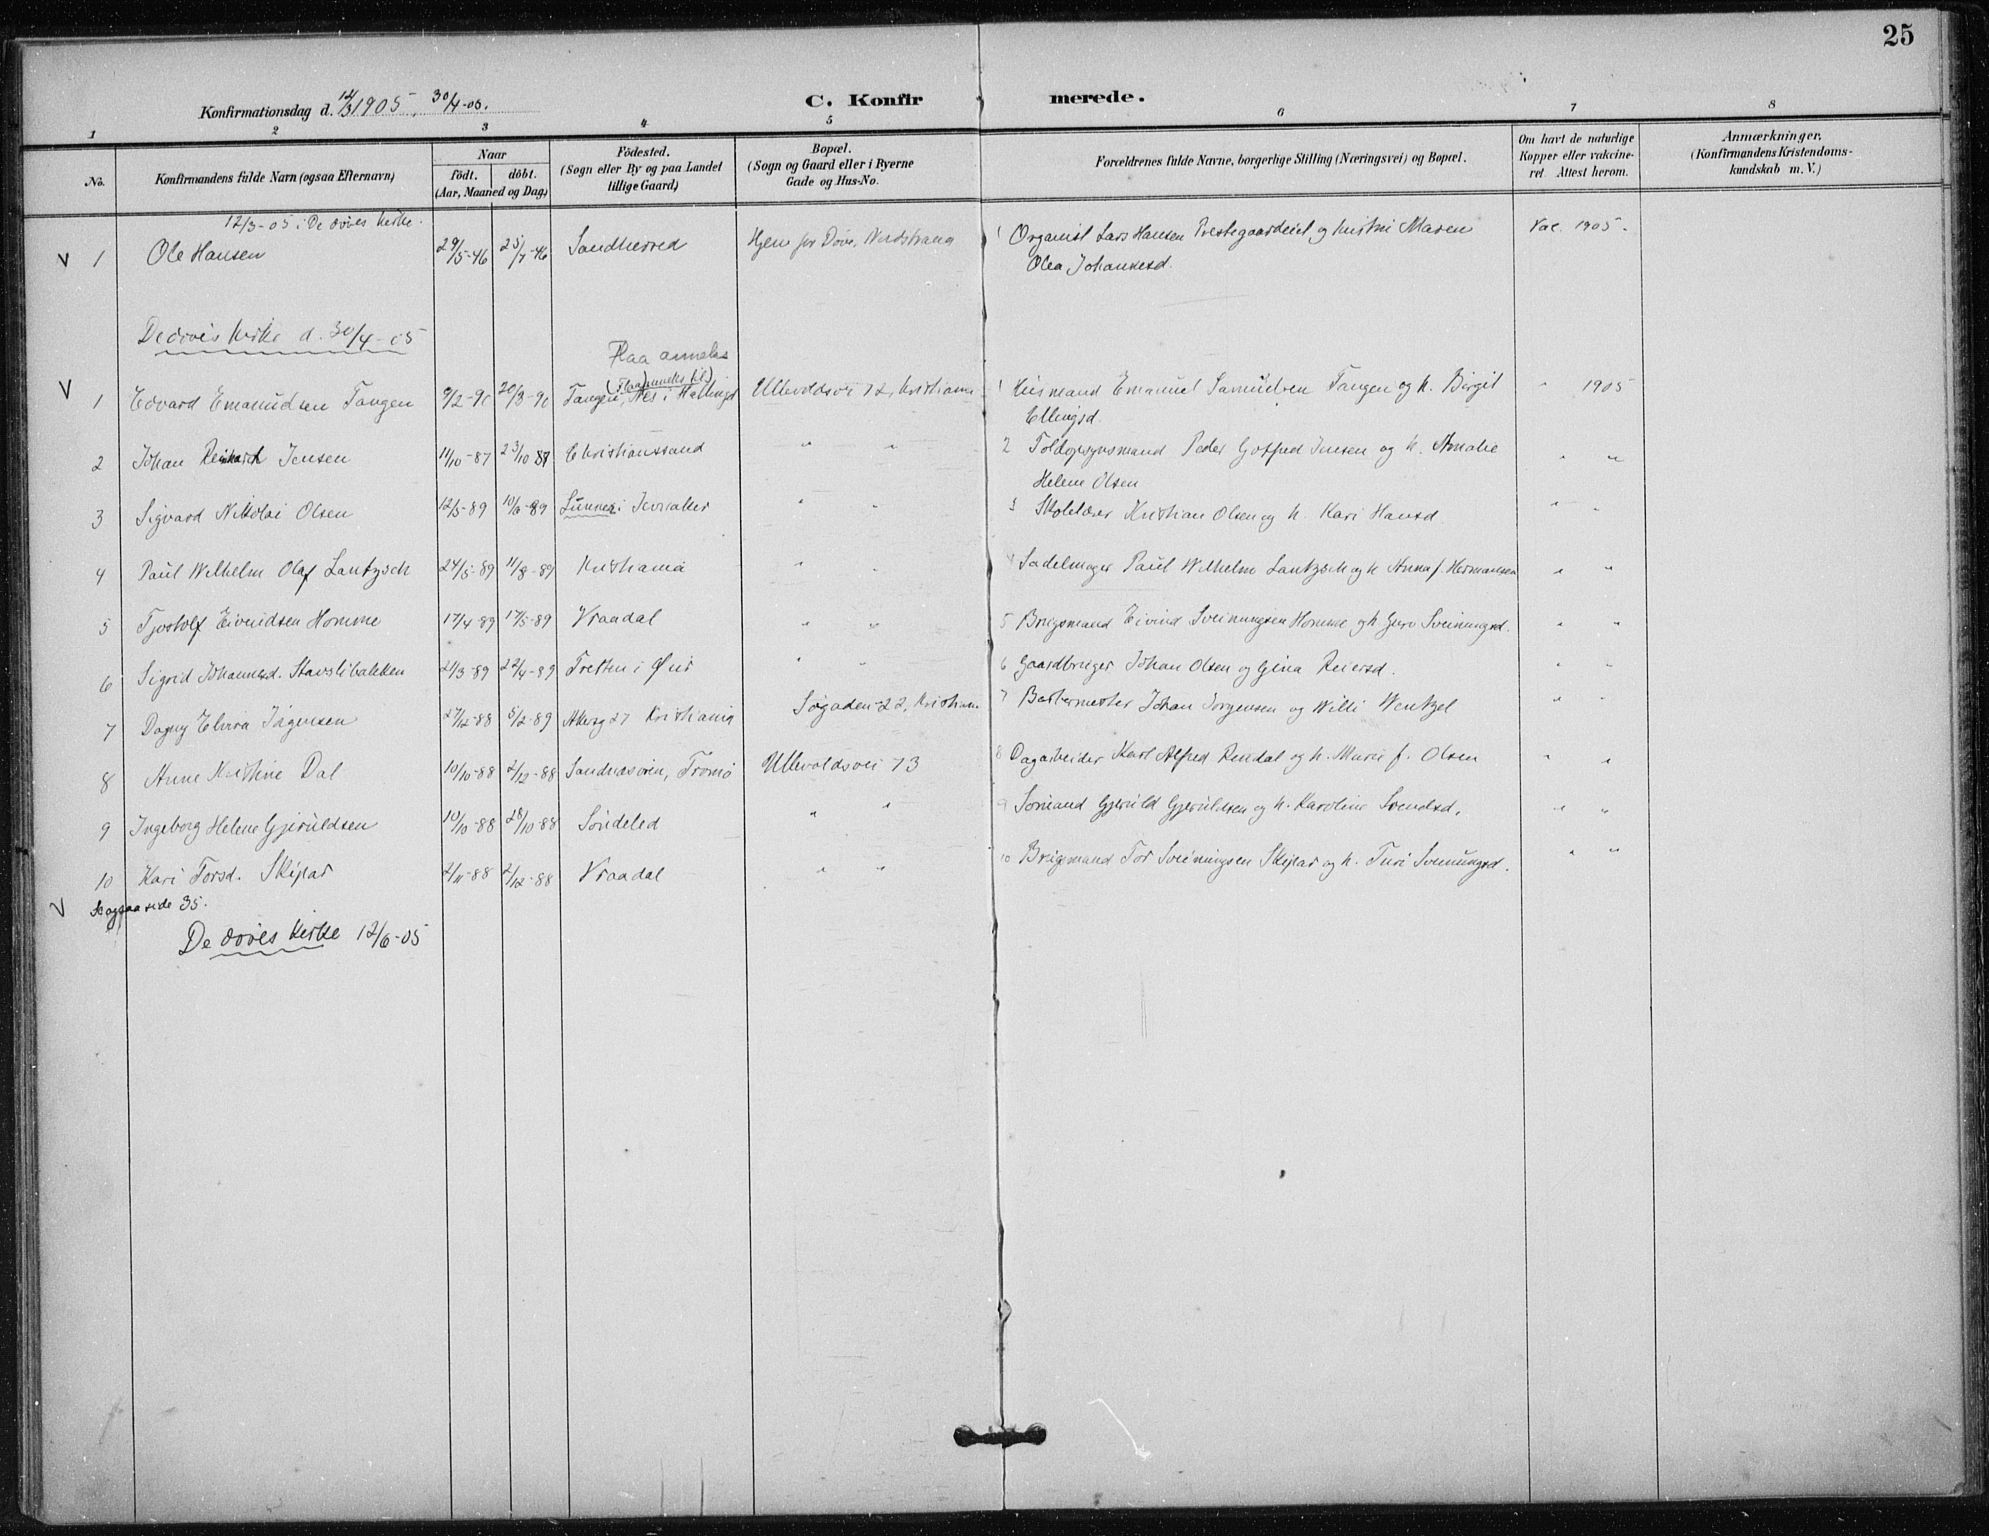 25
Konfirmationsdag d. 12/3 1905, 30/4-05.
C. Konfirmerede.
1 2 3 4 5 6 7 8
No.
Konfirmandens fulde Navn (ogsaa Efternavn)
Naar
født. døbt.
(Aar, Maaned og Dag)
Födested.
(Sogn eller By og paa Landet
tillige Gaard)
Bopæl.
(Sogn og Gaard eller i Byerne
Gade og Hus-No.
Forældrenes fulde Navne, borgerlige Stilling (Næringsvei) og Bopæl.
Om havt de naturlige
Kopper eller vakcine-
ret. Attest herom.
Anmærkninger.
(Konfirmandens Kristendoms-
kundskab m. V.)
12/3-05 i De døves Kirke.
1 Ole Hansen 29/5-46 25/7-46 Sandherred Hjem for Døve, Nordstrand 1 Organist Lars Hansen Prestegaardeiet og hustru Maren Vac. 1905.
Olea Johannesd.
De døves Kirke d. 30/4-05
Flaa anneks
(Flaa anneks til)
1 Edvard Emanuelsen Tangen 9/2-90 20/3-90 Tangen, Nes i Hallingd Ullevoldsvei 72, Kristiania 1 Husmand Emanuel Samuelsen Tangen og h. Birgit " 1905
Ellingsd.
2 Johan Reinhard Jensen 11/10-87 23/10-87 Christianssand " " 2 Toldopsynsmand Peder Gotfred Jensen og h. Amalie " "
Helene Olsen
3 Sigvard Nikolai Olsen 12/5-89 10/6-89 Lunner i Jevnaker " " 3 Skolelærer Kristian Olsen og h. Kari Hansd. " "
4 Paul Wilhelm Olaf Lantzsch 24/5-89 11/8-89 Kristiania " " 4 Sadelmager Paul Wilhelm Lantzsch og h Anna f. Hermansen " "
5 Tjostolf Eivindsen Homme 17/4-89 17/5-89 Vraadal " " 5 Brugsmand Eivind Sveinungsen Homme og h Guro Sveinungsd. " "
6 Sigrid Johannesd. Stavslibakken 21/3-89 22/4-89 Tretten i Øier " " 6 Gaardbruger Johan Olsen og Gina Reiersd. " "
7 Dagny Elvira Jørgensen 27/12-88 5/2-89 Akersg 27 Kristiania Søgaden 22, Kristiania 7 Barbermester Johan Jørgensen og Willi Wentzel " "
8 Anne Kristine Dal 10/10-88 2/12-88 Sandnæsøien, Tromø Ullevoldsvei 73 8 Dagarbeider Karl Alfred Rendal og h. Marie f. Olsen " "
9 Ingeborg Helene Gjeruldsen 10/10-88 28/10-88 Söndeled " " 9 Sømand Gjeruld Gjeruldsen og h. Karoline Svendsd. " "
10 Kari Torsd. Skipar 2/11-88 2/12-88 Vraadal " " 10 Brugsmand Tor Sveinungsen Skipar og h. Turi Sveinungsd. " "
Se ogsaa side 35.
De døves Kirke 12/6-05